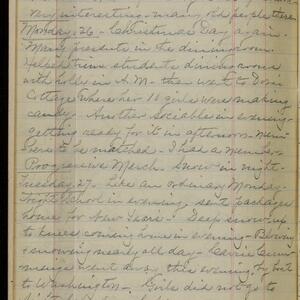 very interesting - many old people there
Monday, 26 - Christmas Day again.
Many presents in the dining room.
Helped trim students dining room
with holly in A.M. - then went to Dixie
Cottage where her 16 girls were making
candy - Another sociable in evening -
getting ready for it in afternoon - 
to be matched. I had a 
Progressive March. Snow in night.
Tuesday, 27. Like an ordinary Monday.
Night School in evening, sent package
home for New Years - Deep snow - up
to knees coming home in evening - Blowing
& snowing nearly all day - 
went away this evening by boat
to Washington. Girls did not go to